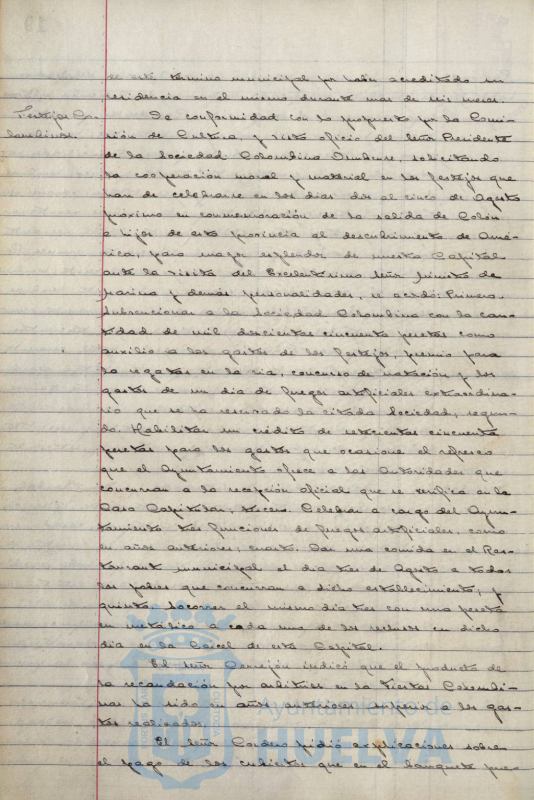 de este termino municipal por haber acreditado su
residencia en el mismo durante mas de seis meses.
Festejos Co-
lombinos.
De conformidad con lo propuesto por la Comi-
sión de Cultura, y visto oficio del Señor Presidente
de la Sociedad Colombina Onubense, solicitando
la cooperación moral y material en los festejos que
han de celebrarse en los dias dos al cinco de Agosto
próximo en conmemoración de la salida de Colón
e hijos de esta provincia al descubrimiento de Amé-
rica, para mayor esplendor de nuestra Capital
ante la visita del Excelentisimo Señor Ministro de
Marina y demás personalidades, se acordó: Primero.
Subvencionar a la Sociedad Colombina con la can-
tidad de mil doscientas cincuenta pesetas como
auxilio a los gastos de los festejos, premio para
la regatas en la ria, concurso de natación y los
gastos de un dia de fuegos artificiales extraordina-
rio que se ha reservado la citada Sociedad, segun-
do. Habilitar un crédito de setecientas cincuenta
pesetas para los gastos que ocasione el refresco
que el Ayuntamiento ofrece a las Autoridades que
concurran a la recepción oficial que se verifica en la
Casa Capitular, tercero. Celebrar a cargo del Ayun-
tamiento tres funciones de fuegos artificiales, como
en años anteriores, cuarto. Dar una comida en el Res-
taurant municipal el dia tres de Agosto a todos
los pobres que concurran a dicho establecimiento, y
quinto, socorrer el mismo dia tres con una peseta
en metálico a cada uno de los reclusos en dicho
dia en la Cárcel de esta Capital.
El Señor indicó que el producto de
la recaudación por arbitrios en las Fiestas Colombi-
nas ha sido en años anteriores superior a los gas-
tos realizados.
El Señor Cordero pidió explicaciones sobre
el pago de los cubiertos que en el banquete pue-
Ayuntamiento de
HUELVA